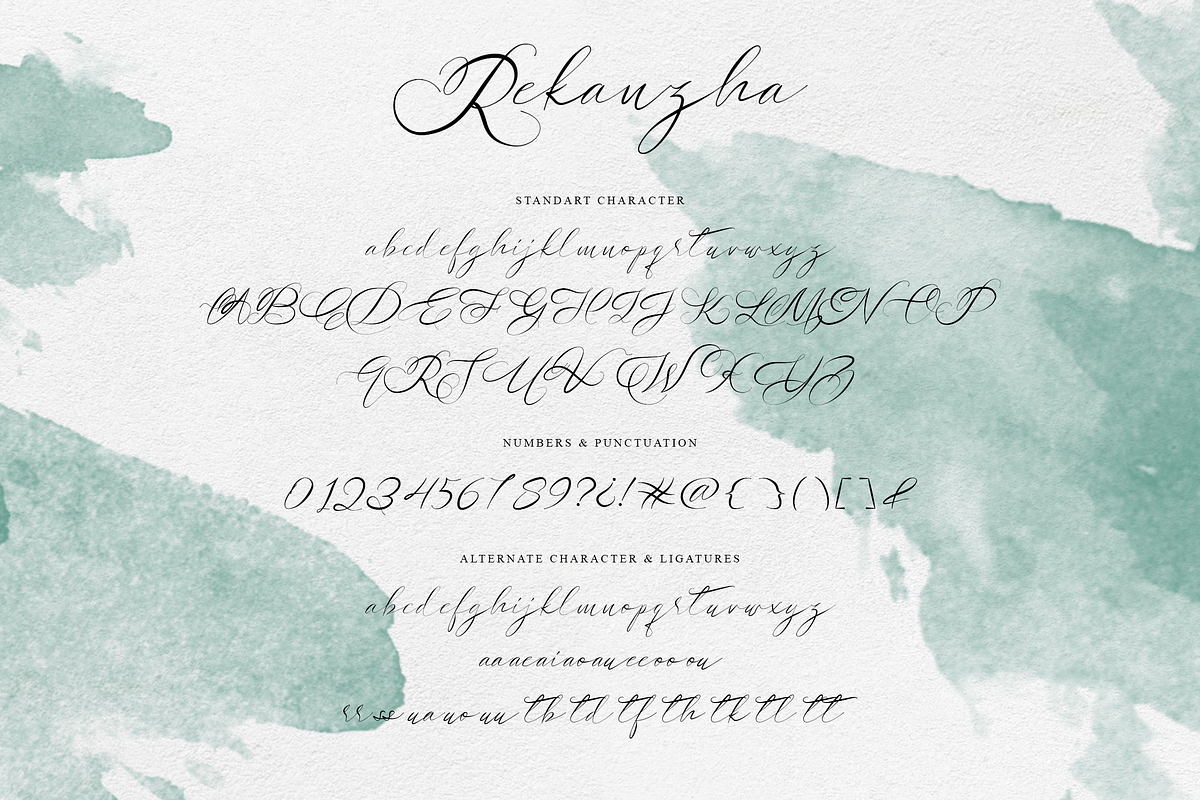 Rekanzha
STANDART CHARACTER
abcdefghijklmnopqrstuvwxyz
ABCDEFGHIJKLMNOP
QRSTUVWXYZ
NUMBERS & PUNCTUATION
0123456789?¿!#@{}()[]&
ALTERNATE CHARACTER & LIGATURES
abcdefghijklmnopqrstuvwxyz
aaaeaiaoaueeooou
rrssuauouutbtdtfthtktltt